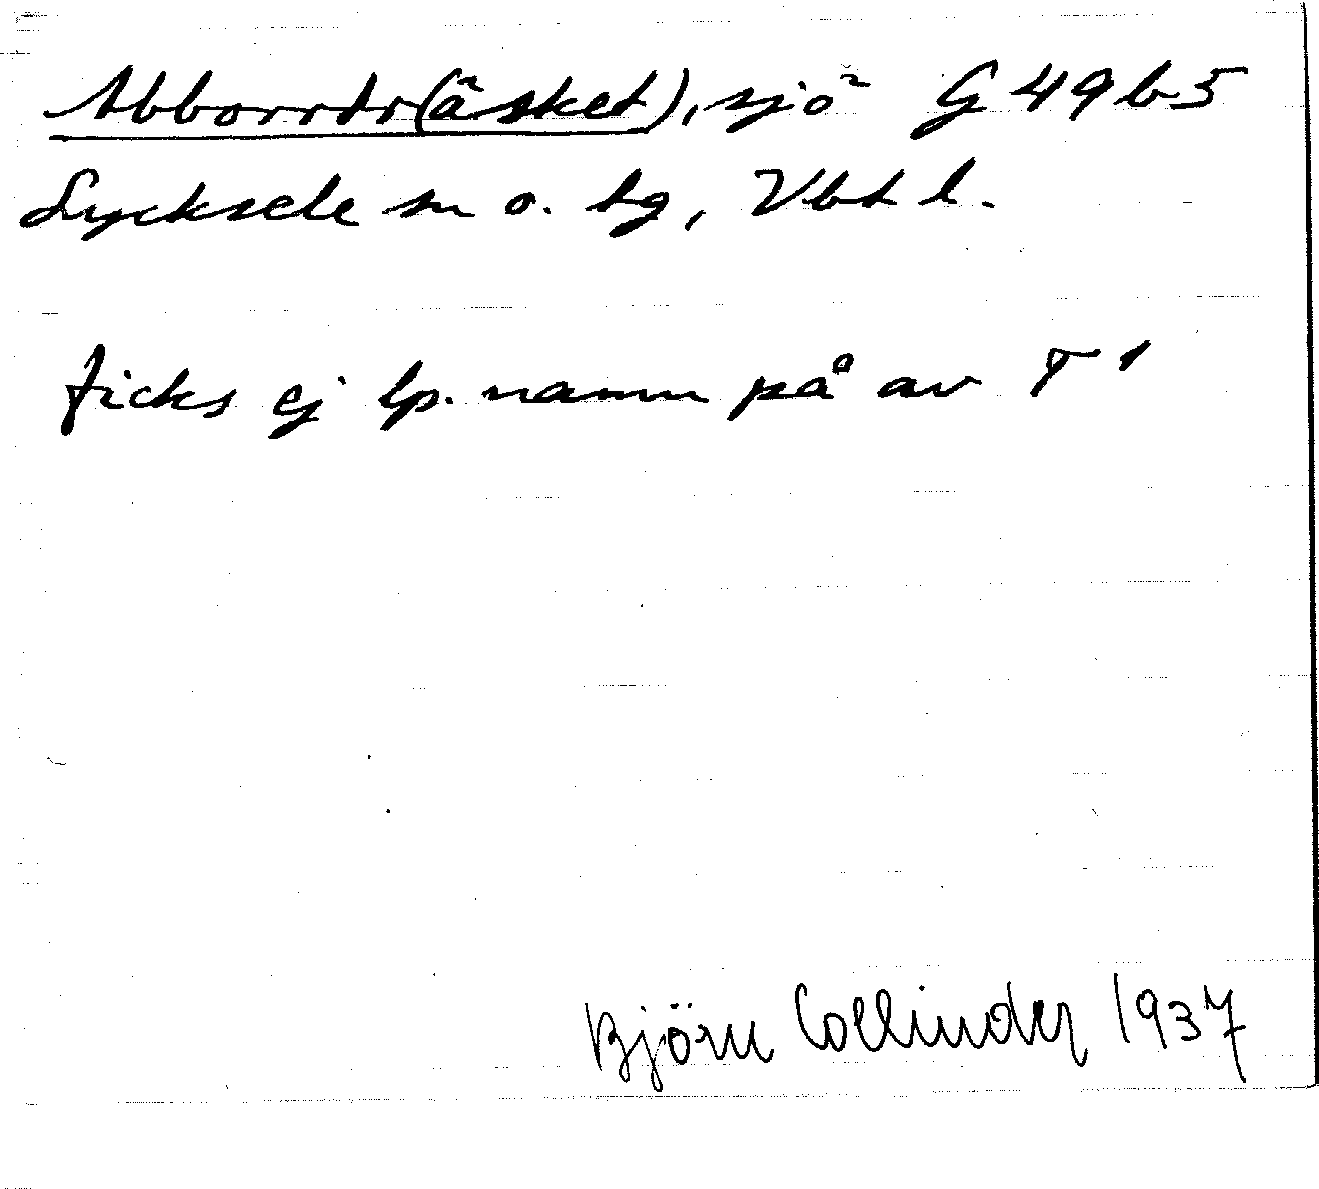 Abborrtr(äsket), sjö G 49 b 5
Lycksele sn o. tg, Vbt l.
ficks ej lp. namn på av T 1
Björn Collinder 1937